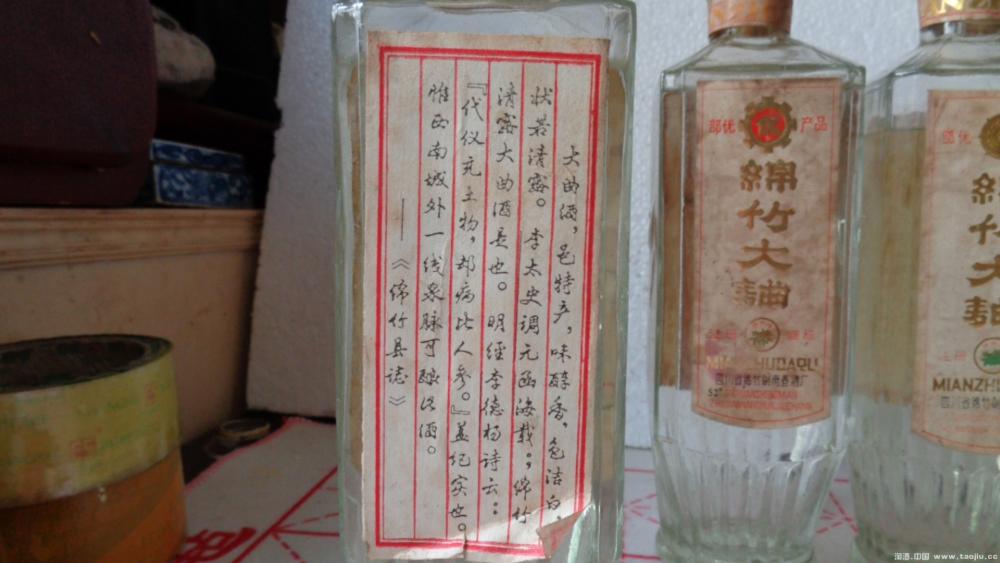 大曲酒，邑特产，味醇香，色洁白，
状若清露。李太史调元函海载。绵竹
清露大曲酒是也。明经李德杨诗云：
『代仪充土物，却病比人参。』盖纪实也。
惟西南城外一线泉脉可酿此酒。
——《绵竹县志》
部优 产品
绵竹大麯
MIANZHUDAQU
四川省绵竹剑南春酒厂
部优
MIANZH
四川省绵竹
淘酒.中国 www.taojiu.cc